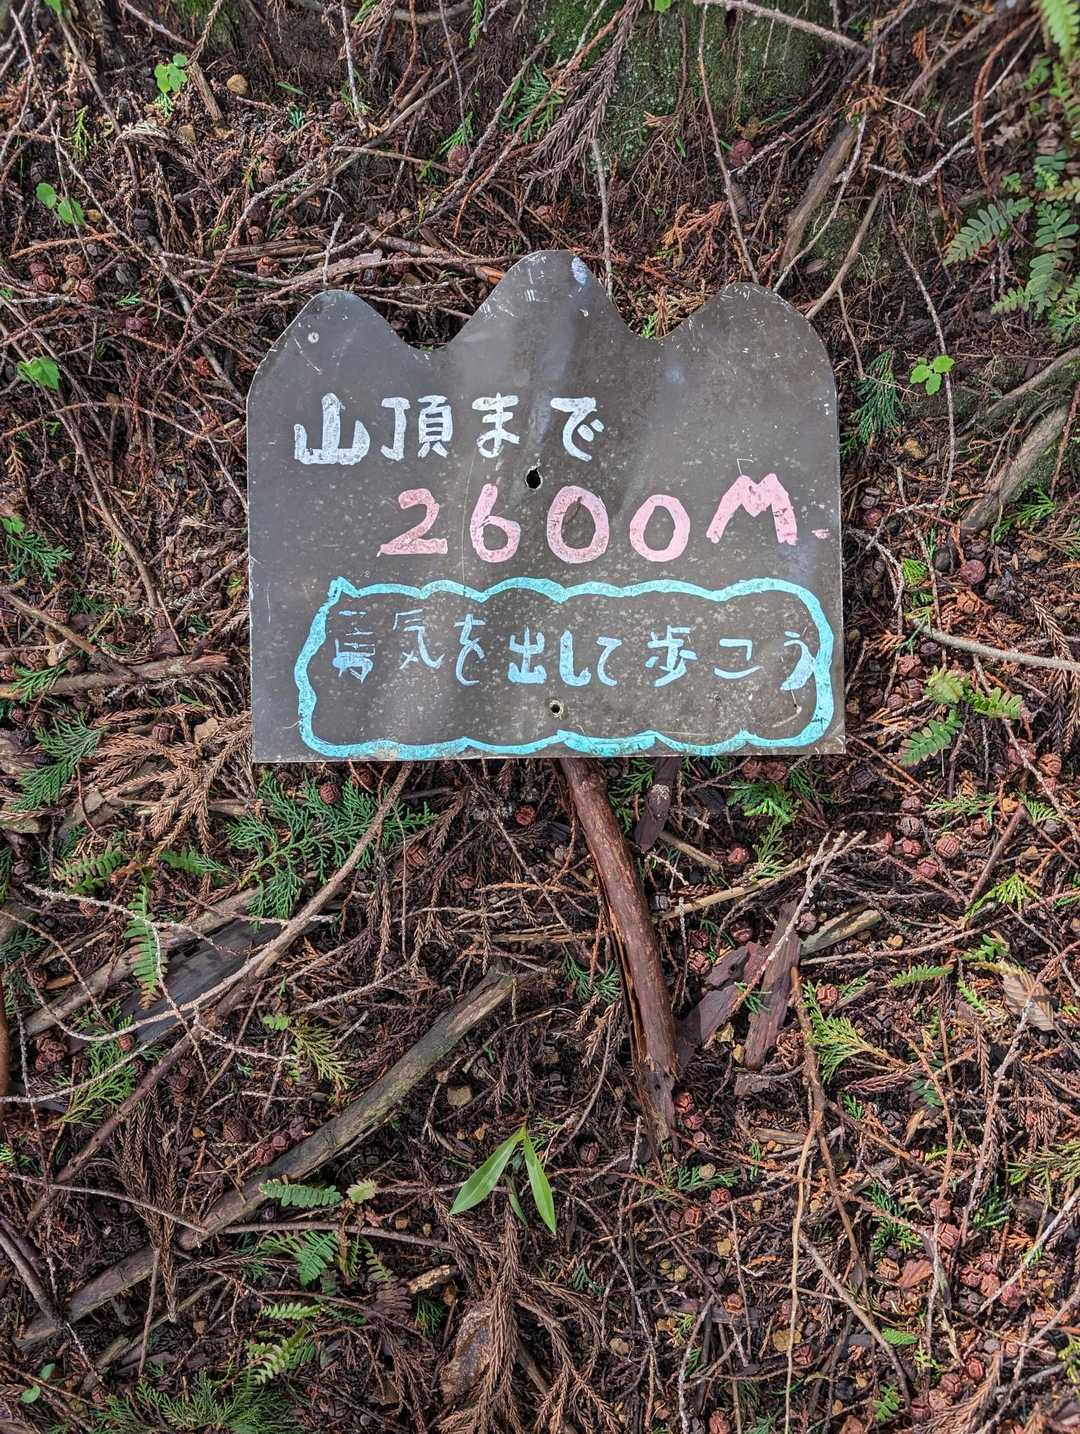 山頂まで
2600M.
勇気を出して歩こう